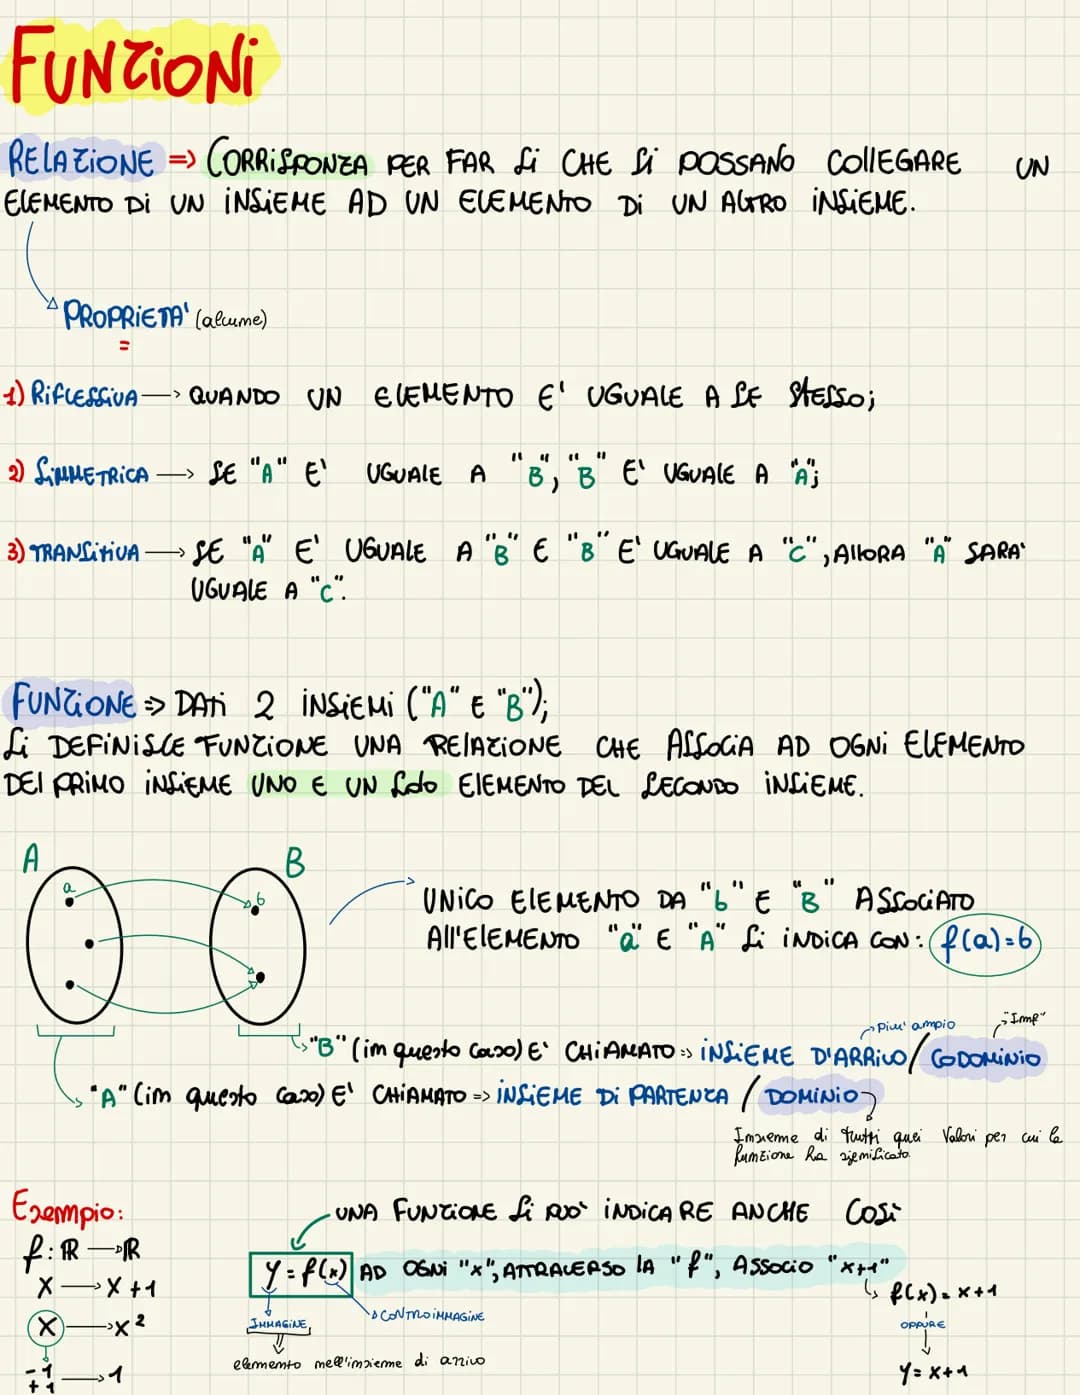 FUNZIONI
RELAZIONE => CORRISPONZA PER FAR SI CHE SI POSSANO COLLEGARE UN
ELEMENTO DI UN INSIEME AD UN ELEMENTO DI UN ALTRO INSIEME.
PROPRIETA' (alcune)
1) RIFLESSIVA → QUANDO UN ELEMENTO E' UGUALE A SE STESSO;
2) SIMMETRICA → SE "A" E' UGUALE A "B", "B" E' UGUALE A "A";
3) TRANSITIVA → SE "A" E' UGUALE A "B" E "B" E' UGUALE A "C", ALLORA "A" SARA'
UGUALE A "C".
FUNZIONE => DATI 2 INSIEMI ("A" E "B");
SI DEFINISCE FUNZIONE UNA RELAZIONE CHE ASSOCIA AD OGNI ELEMENTO
DEL PRIMO INSIEME UNO E UN SOLO ELEMENTO DEL SECONDO INSIEME.
A B
a b
UNICO ELEMENTO DA "b" E "B" ASSOCIATO
ALL'ELEMENTO "a" E "A" SI INDICA CON: f(a)=b
più ampio "Imf"
"B" (in questo caso) E' CHIAMATO => INSIEME D'ARRIVO / CODOMINIO
"A" (in questo caso) E' CHIAMATO => INSIEME DI PARTENZA / DOMINIO
Insieme di tutti quei valori per cui la
funzione ha significato.
Esempio:
f: ℝ → ℝ
X → X + 1
X → X²
-1
+1 → 1
UNA FUNZIONE SI PUO' INDICARE ANCHE COSI
Y = f(x) AD OGNI "x", ATTRAVERSO LA "f", ASSOCIO "x+1"
f(x) = x+1
IMMAGINE CONTROIMMAGINE
OPPURE
elemento nell'insieme di arrivo
Y = x+1